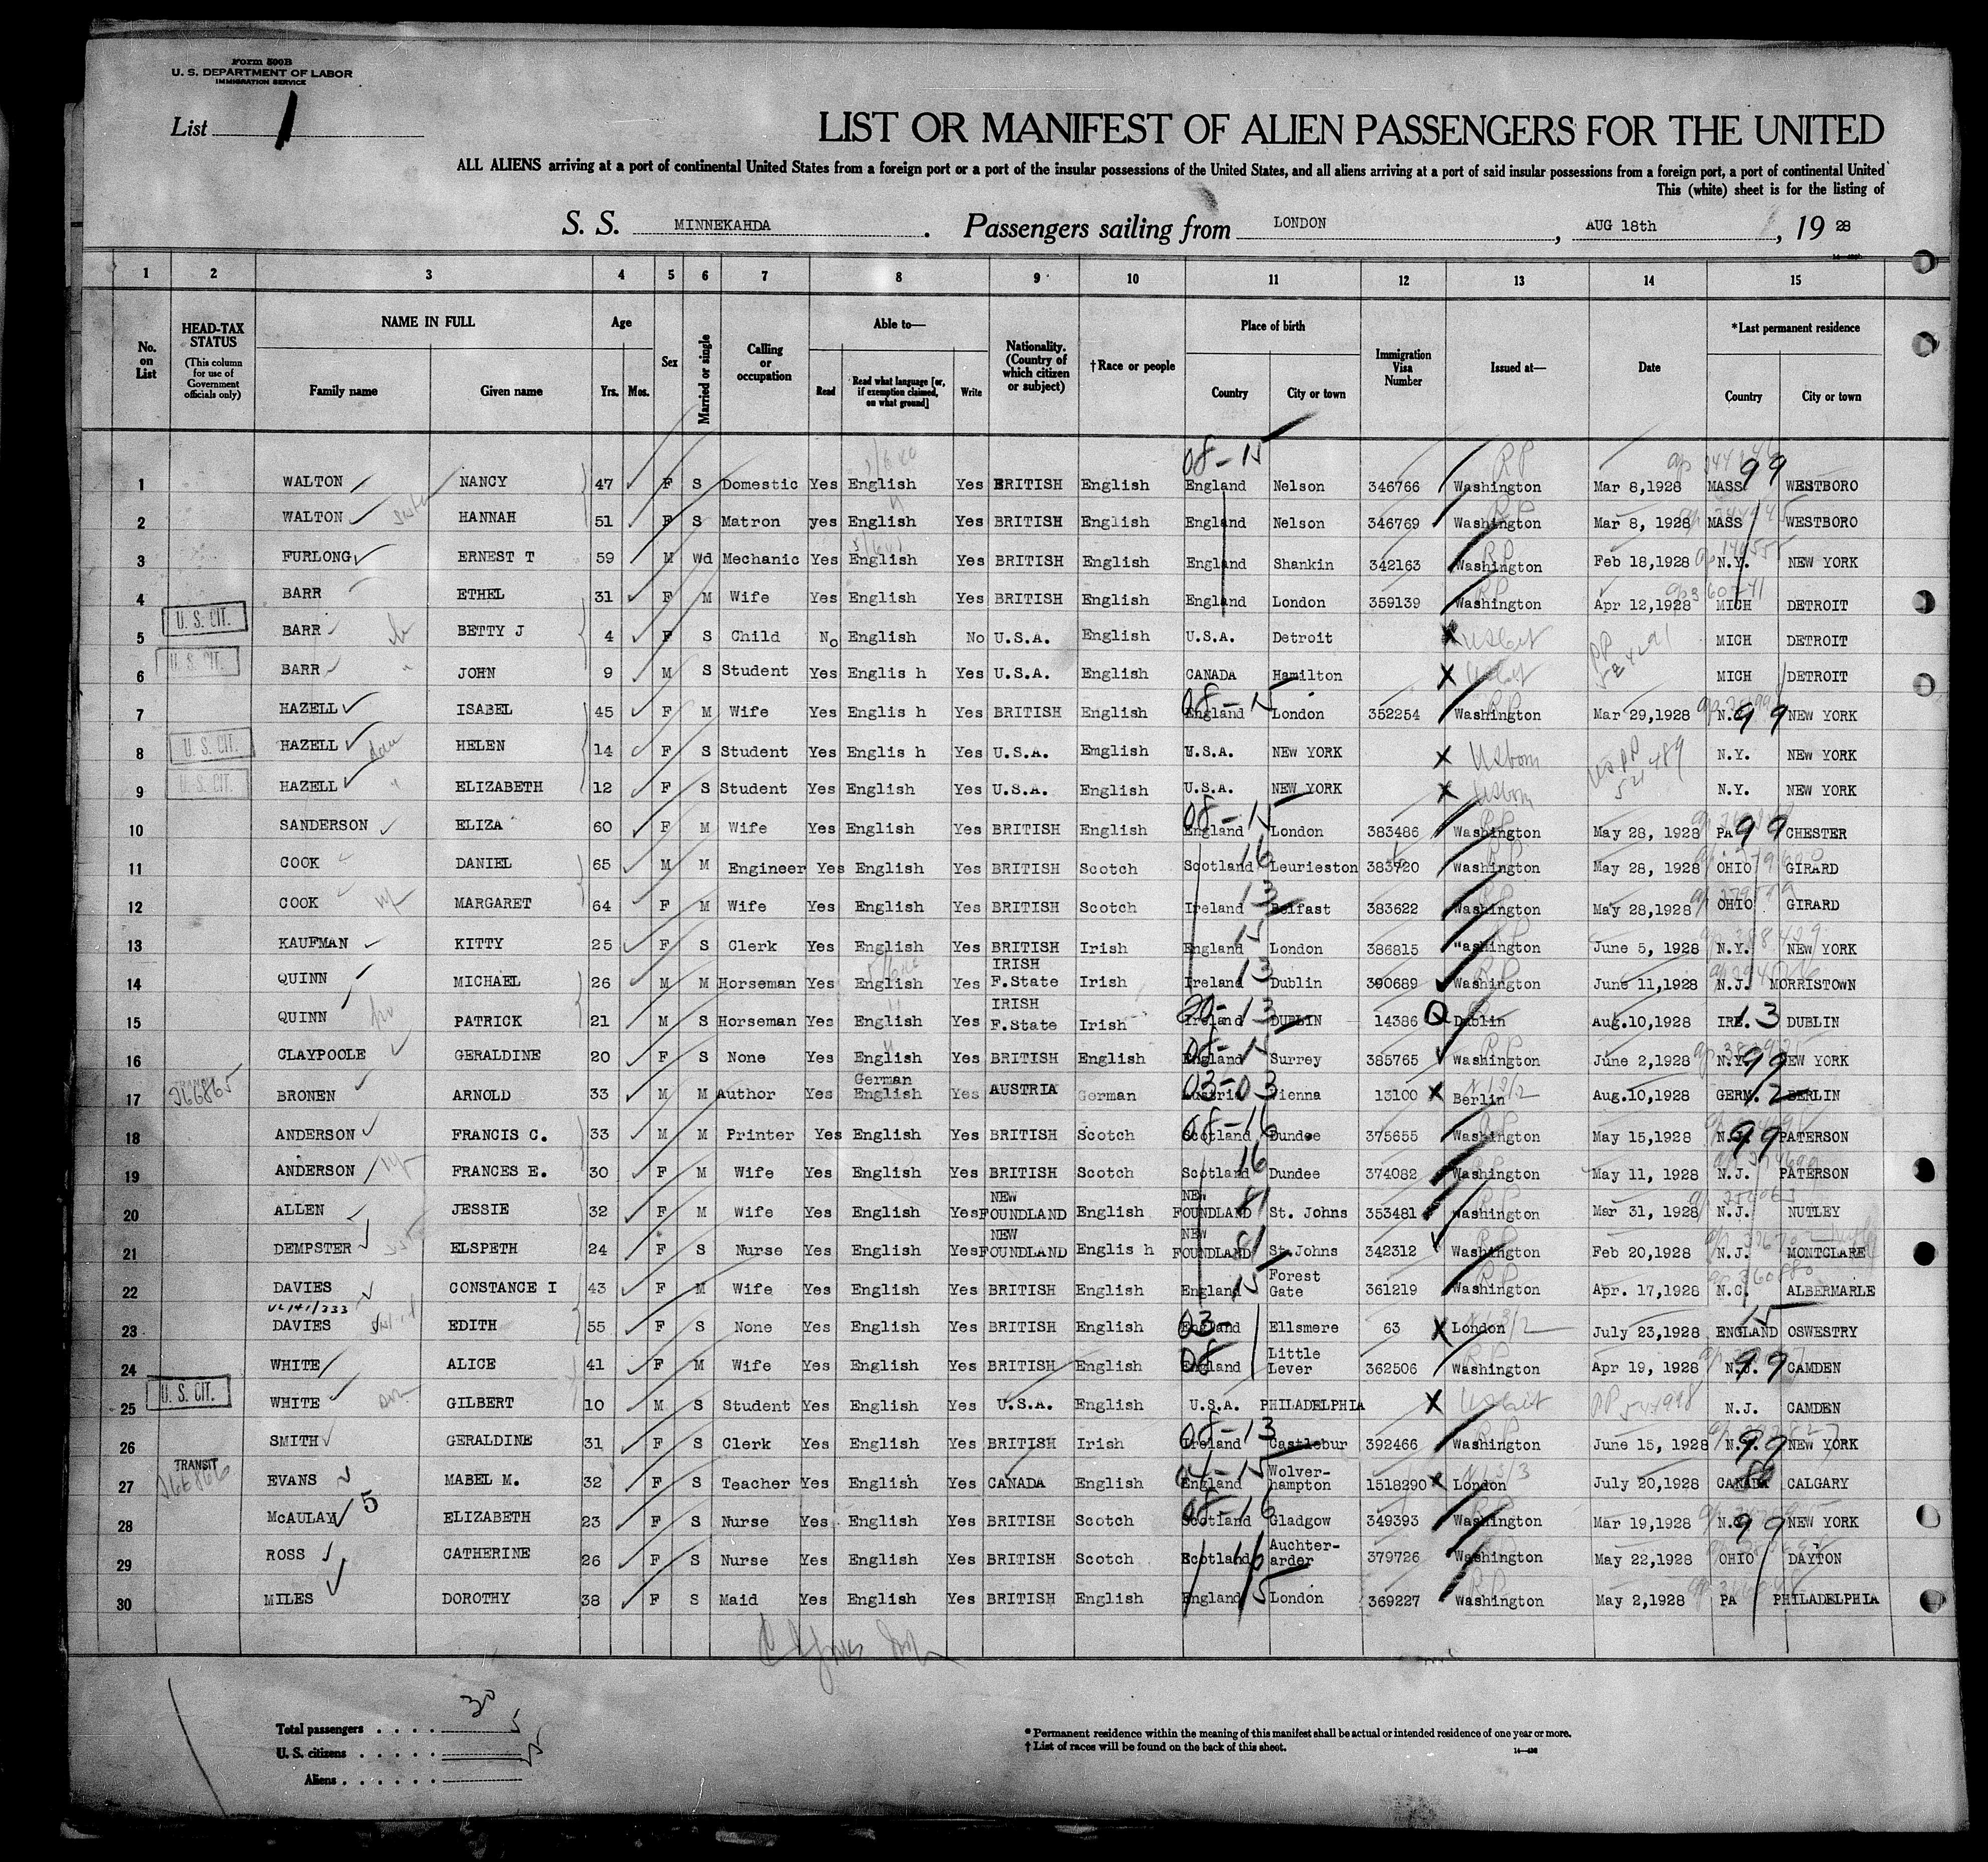 Form 500B
U. S. DEPARTMENT OF LABOR
IMMIGRATION SERVICE
List 1
LIST OR MANIFEST OF ALIEN PASSENGERS FOR THE UNITED
ALL ALIENS arriving at a port of continental United States from a foreign port or a port of the insular possessions of the United States, and all aliens arriving at a port of said insular possessions from a foreign port, a port of continental United
This (white) sheet is for the listing of
S. S. MINNEKAHDA . Passengers sailing from LONDON , AUG 18th , 19 28
1 2 3 4 5 6 7 8 9 10 11 12 13 14 15
No. on List
HEAD-TAX STATUS (This column for use of Government officials only)
NAME IN FULL Family name Given name
Age Yrs. Mos.
Sex
Married or single
Calling or occupation
Able to— Read Read what language [or, if exemption claimed, on what ground] Write
Nationality. (Country of which citizen or subject)
†Race or people
Place of birth Country City or town
Immigration Visa Number
Issued at—
Date
*Last permanent residence Country City or town
08-15
1 WALTON NANCY 47 F S Domestic Yes English Yes BRITISH English England Nelson 346766 Washington RP Mar 8,1928 MASS 99 WESTBORO
2 WALTON HANNAH 51 F S Matron yes English Yes BRITISH English England Nelson 346769 Washington RP Mar 8, 1928 MASS WESTBORO
3 FURLONG ERNEST T 59 M Wd Mechanic Yes English Yes BRITISH English England Shankin 342163 Washington RP Feb 18,1928 N.Y. NEW YORK
4 BARR ETHEL 31 F M Wife Yes English Yes BRITISH English England London 359139 Washington RP Apr 12,1928 MICH DETROIT
5 U. S. CIT. BARR BETTY J 4 F S Child No English No U.S.A. English U.S.A. Detroit X MICH DETROIT
6 U. S. CIT. BARR JOHN 9 M S Student Yes Englis h Yes U.S.A. English CANADA Hamilton X MICH DETROIT
7 HAZELL ISABEL 45 F M Wife Yes Englis h Yes BRITISH English 08-15 England London 352254 Washington RP Mar 29,1928 N.Y. 99 NEW YORK
8 U. S. CIT. HAZELL dau HELEN 14 F S Student Yes Englis h Yes U.S.A. Emglish U.S.A. NEW YORK X US born N.Y. NEW YORK
9 U. S. CIT. HAZELL " ELIZABETH 12 F S Student Yes English Yes U.S.A. English U.S.A. NEW YORK X US born N.Y. NEW YORK
10 SANDERSON ELIZA 60 F M Wife Yes English Yes BRITISH English 08-15 England London 383486 Washington RP May 28, 1928 PA 99 CHESTER
11 COOK DANIEL 65 M M Engineer Yes English Yes BRITISH Scotch Scotland 16 Leurieston 383720 Washington RP May 28, 1928 OHIO GIRARD
12 COOK MARGARET 64 F M Wife Yes English Yes BRITISH Scotch Ireland 13 Belfast 383622 Washington RP May 28,1928 OHIO GIRARD
13 KAUFMAN KITTY 25 F S Clerk Yes English Yes BRITISH Irish England 15 London 386815 "ashington RP June 5, 1928 N.Y. NEW YORK
14 QUINN MICHAEL 26 M M Horseman Yes English Yes IRISH F.State Irish Ireland 13 Dublin 390689 Washington RP June 11,1928 N.J. MORRISTOWN
15 QUINN PATRICK 21 M S Horseman Yes English Yes IRISH F.State Irish 20-13 Ireland DUBLIN 14386 Q Dublin Aug.10,1928 IRE. 13 DUBLIN
16 CLAYPOOLE GERALDINE 20 F S None Yes English Yes BRITISH English 08-15 England Surrey 385765 Washington RP June 2,1928 N.Y. 99 NEW YORK
17 266865 BRONEN ARNOLD 33 M M Author Yes German English Yes AUSTRIA German 03-03 Austria Vienna 13100 X Berlin Aug.10,1928 GERM. 12 BERLIN
18 ANDERSON FRANCIS C. 33 M M Printer Yes English Yes BRITISH Scotch 08-16 Scotland Dundee 375655 Washington May 15,1928 N.J. 99 PATERSON
19 ANDERSON FRANCES E. 30 F M Wife Yes English Yes BRITISH Scotch Scotland 16 Dundee 374082 Washington May 11, 1928 N.J. PATERSON
20 ALLEN JESSIE 32 F M Wife Yes English Yes NEW FOUNDLAND English NEW FOUNDLAND 81 St. Johns 353481 Washington RP Mar 31, 1928 N.J. NUTLEY
21 DEMPSTER ELSPETH 24 F S Nurse Yes English Yes NEW FOUNDLAND Englis h NEW FOUNDLAND 81 St.Johns 342312 Washington RP Feb 20,1928 N.J. MONTCLARE
22 DAVIES CONSTANCE I 43 F M Wife Yes English Yes BRITISH English England 15 Forest Gate 361219 Washington RP Apr. 17,1928 N.C. ALBERMARLE
23 DAVIES EDITH 55 F S None Yes English Yes BRITISH English 03- England Ellsmere 63 X London July 23,1928 ENGLAND 15 OSWESTRY
24 WHITE ALICE 41 F M Wife Yes English Yes BRITISH English 08 England Little Lever 362506 Washington RP Apr 19, 1928 N.J. 99 CAMDEN
25 U. S. CIT. WHITE son GILBERT 10 M S Student Yes English Yes U.S.A. English U.S.A. PHILADELPHIA X N.J. CAMDEN
26 SMITH GERALDINE 31 F S Clerk Yes English Yes BRITISH Irish 08-13 Ireland Castlebur 392466 Washington RP June 15, 1928 N.Y. 99 NEW YORK
27 TRANSIT 266866 EVANS MABEL M. 32 F S Teacher Yes English Yes CANADA English 04-15 England Wolver-hampton 1518290 London July 20,1928 CANADA 80 CALGARY
28 McAULAY 5 ELIZABETH 23 F S Nurse Yes English Yes BRITISH Scotch 08-16 Scotland Gladgow 349393 Washington RP Mar 19,1928 N.Y. 99 NEW YORK
29 ROSS CATHERINE 26 F S Nurse Yes English Yes BRITISH Scotch Scotland 16 Auchter-arder 379726 Washington May 22,1928 OHIO DAYTON
30 MILES DOROTHY 38 F S Maid Yes English Yes BRITISH English England 15 London 369227 Washington RP May 2,1928 PA PHILADELPHIA
Total passengers . . . . 30
U. S. citizens . . . . . 5
Aliens . . . . . . 25
* Permanent residence within the meaning of this manifest shall be actual or intended residence of one year or more.
† List of races will be found on the back of this sheet.